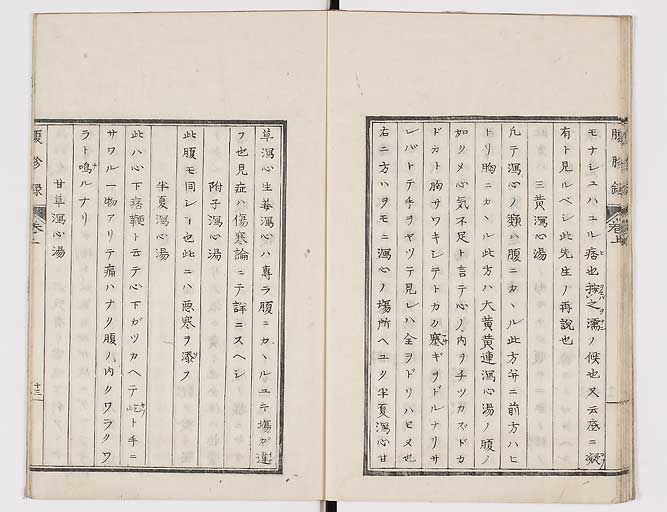 モナシユハユル痞也按之濡ノ候也又云座ニ凝
有ト見ルベシ此先生ノ再說也
三黄瀉心湯
凡テ瀉心ノ類ハ腹ニカヽル此方弁ニ前方ハヒ
トリ胸ニカヽル此方ハ大黄黄連瀉心湯ノ腹ノ
如クメ心気不足ト言テ心ノ内ヲチツカズドカ
ドカト胸サワキシテトカク塞ギヲドルナリサ
レバトテ手ヲヤツテ見レハ全ヲドリハセヌ也
右ニ方ハヲモニ瀉心ノ場所ヘユク半夏瀉心甘
草瀉心生姜瀉心ハ専ラ腹ニカヽルユヱ場ガ違
フ也見症ハ傷寒論ニテ詳ニスヘシ
附子瀉心湯
此腹モ同シヿ也此ニハ悪寒ヲ添フ
半夏瀉心湯
此ハ心下痞鞕ト云テ心下ガツカヘテ屹ト手ニ
サワル一物アリテ痛ハナク腹ノ内クワラクワ
ラト鳴ルナリ
甘草瀉心湯
腹診録
巻上
十三